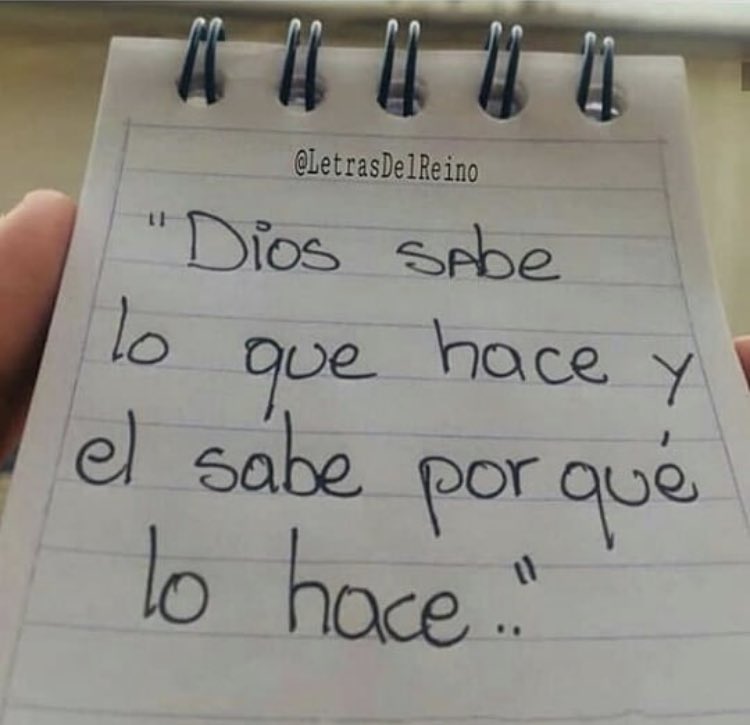 @LetrasDelReino
"Dios sabe
lo que hace y
el sabe por qué
lo hace.."